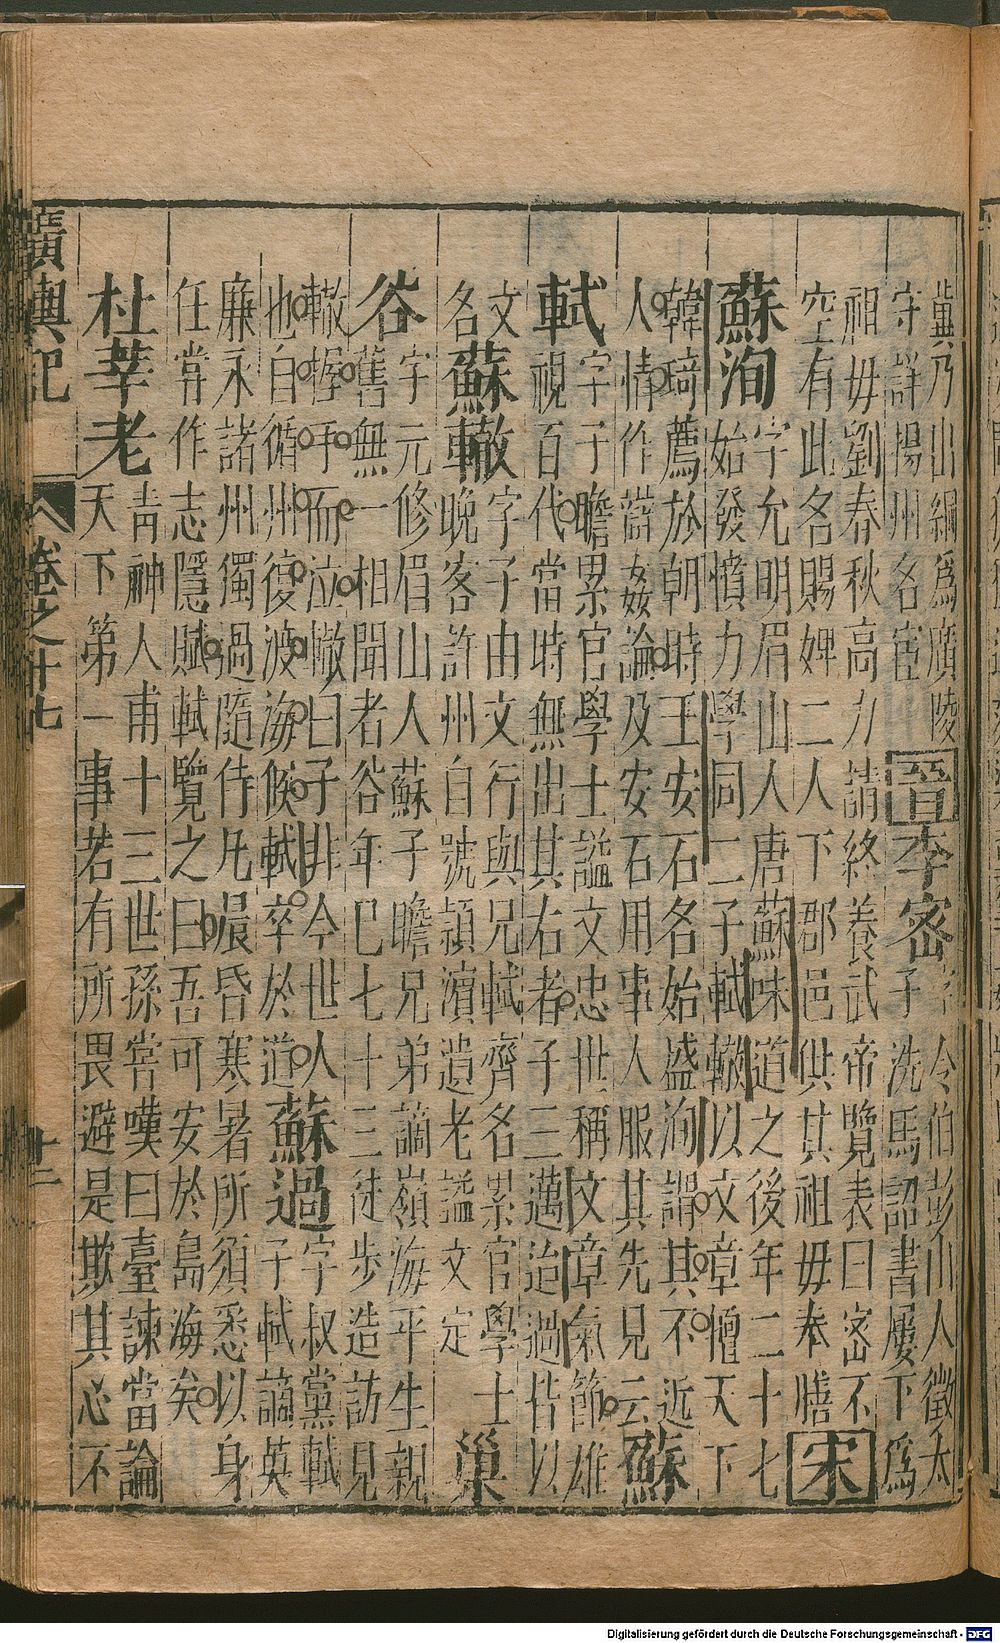 冀乃山綱爲廣陵
守詳揚州名宦
晉
李密
字令伯彭山人徵太
子洗馬詔書屢下爲
祖毋劉春秋高力請終養武帝覽表曰密不
空有此名賜婢二人下郡邑供其祖毋奉膳
宋
蘇洵
字允明眉山人唐蘇味道之後年二十七
始發憤力學同二子軾轍以文章憻天下
韓琦薦於朝時王安石名始盛洵謂其不近
人情作辯姦論及安石用事人服其先見云
蘇
軾
字子瞻累官學士謚文忠世稱文章氣節雄
視百代當時無出其右者子三邁迨過皆以
文
名
蘇轍
字子由文行與兄軾齊名累官學士
晚客許州自號潁濱遺老謚文定
巢
谷
字元修眉山人蘇子瞻兄弟謫嶺海平生親
舊無一相聞者谷年巳七十三徒步造訪見
轍握手而泣轍曰子非今世人
也自循州復渡海候軾卒於道
蘇過
字叔黨軾
子軾謫英
廉永諸州獨過隨侍凡晨昏寒暑所須悉以身
任嘗作志隱賦軾覽之曰吾可安於島海矣
杜莘老
青神人甫十三世孫嘗嘆曰臺諫當論
天下第一事若有所畏避是欺其心不
廣輿記 卷之十七 十二
Digitalisierung gefördert durch die Deutsche Forschungsgemeinschaft - DFG